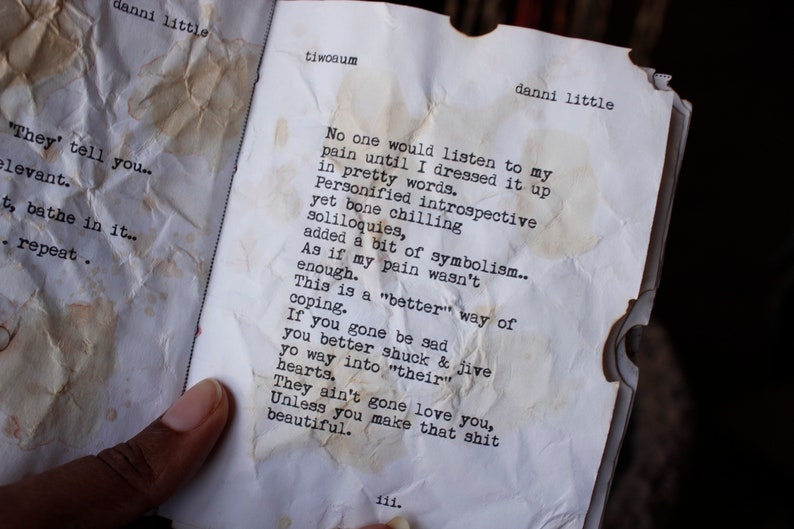 danni little
'They' tell you..
elevant.
t, bathe in it..
. repeat .
tiwoaum
danni little
No one would listen to my
pain until I dressed it up
in pretty words.
Personified introspective
yet bone chilling
soliloquies,
added a bit of symbolism..
As if my pain wasn't
enough.
This is a "better" way of
coping.
If you gone be sad
you better shuck & jive
yo way into "their"
hearts.
They ain't gone love you,
Unless you make that shit
beautiful.
iii.